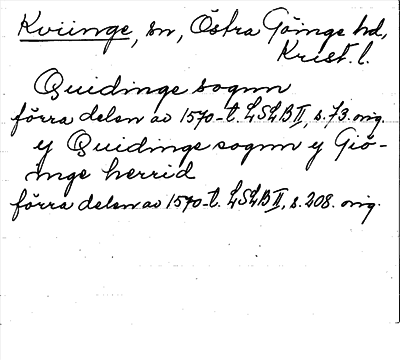 Kviinge, sn, Östra Göinge hd,
Krist. l.
Quidinge sognn
förra delen av 1570-t. LSLB II, s. 73. orig.
y Quidinge sognn y Giö-
inge herrid
förra delen av 1570-t. LSLB II, s. 208. orig.